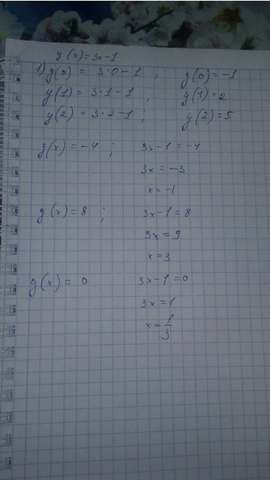 y(x)=3x-1
1) y(0) = 3·0-1 ; y(0)=-1
y(1) = 3·1-1 ; y(1)=2
y(2) = 3·2-1 ; y(2)=5
y(x) = -4 ; 3x-1=-4
3x=-3
x=-1
y(x)=8 ; 3x-1=8
3x=9
x=3
y(x)= 0 3x-1=0
3x=1
x=1/3